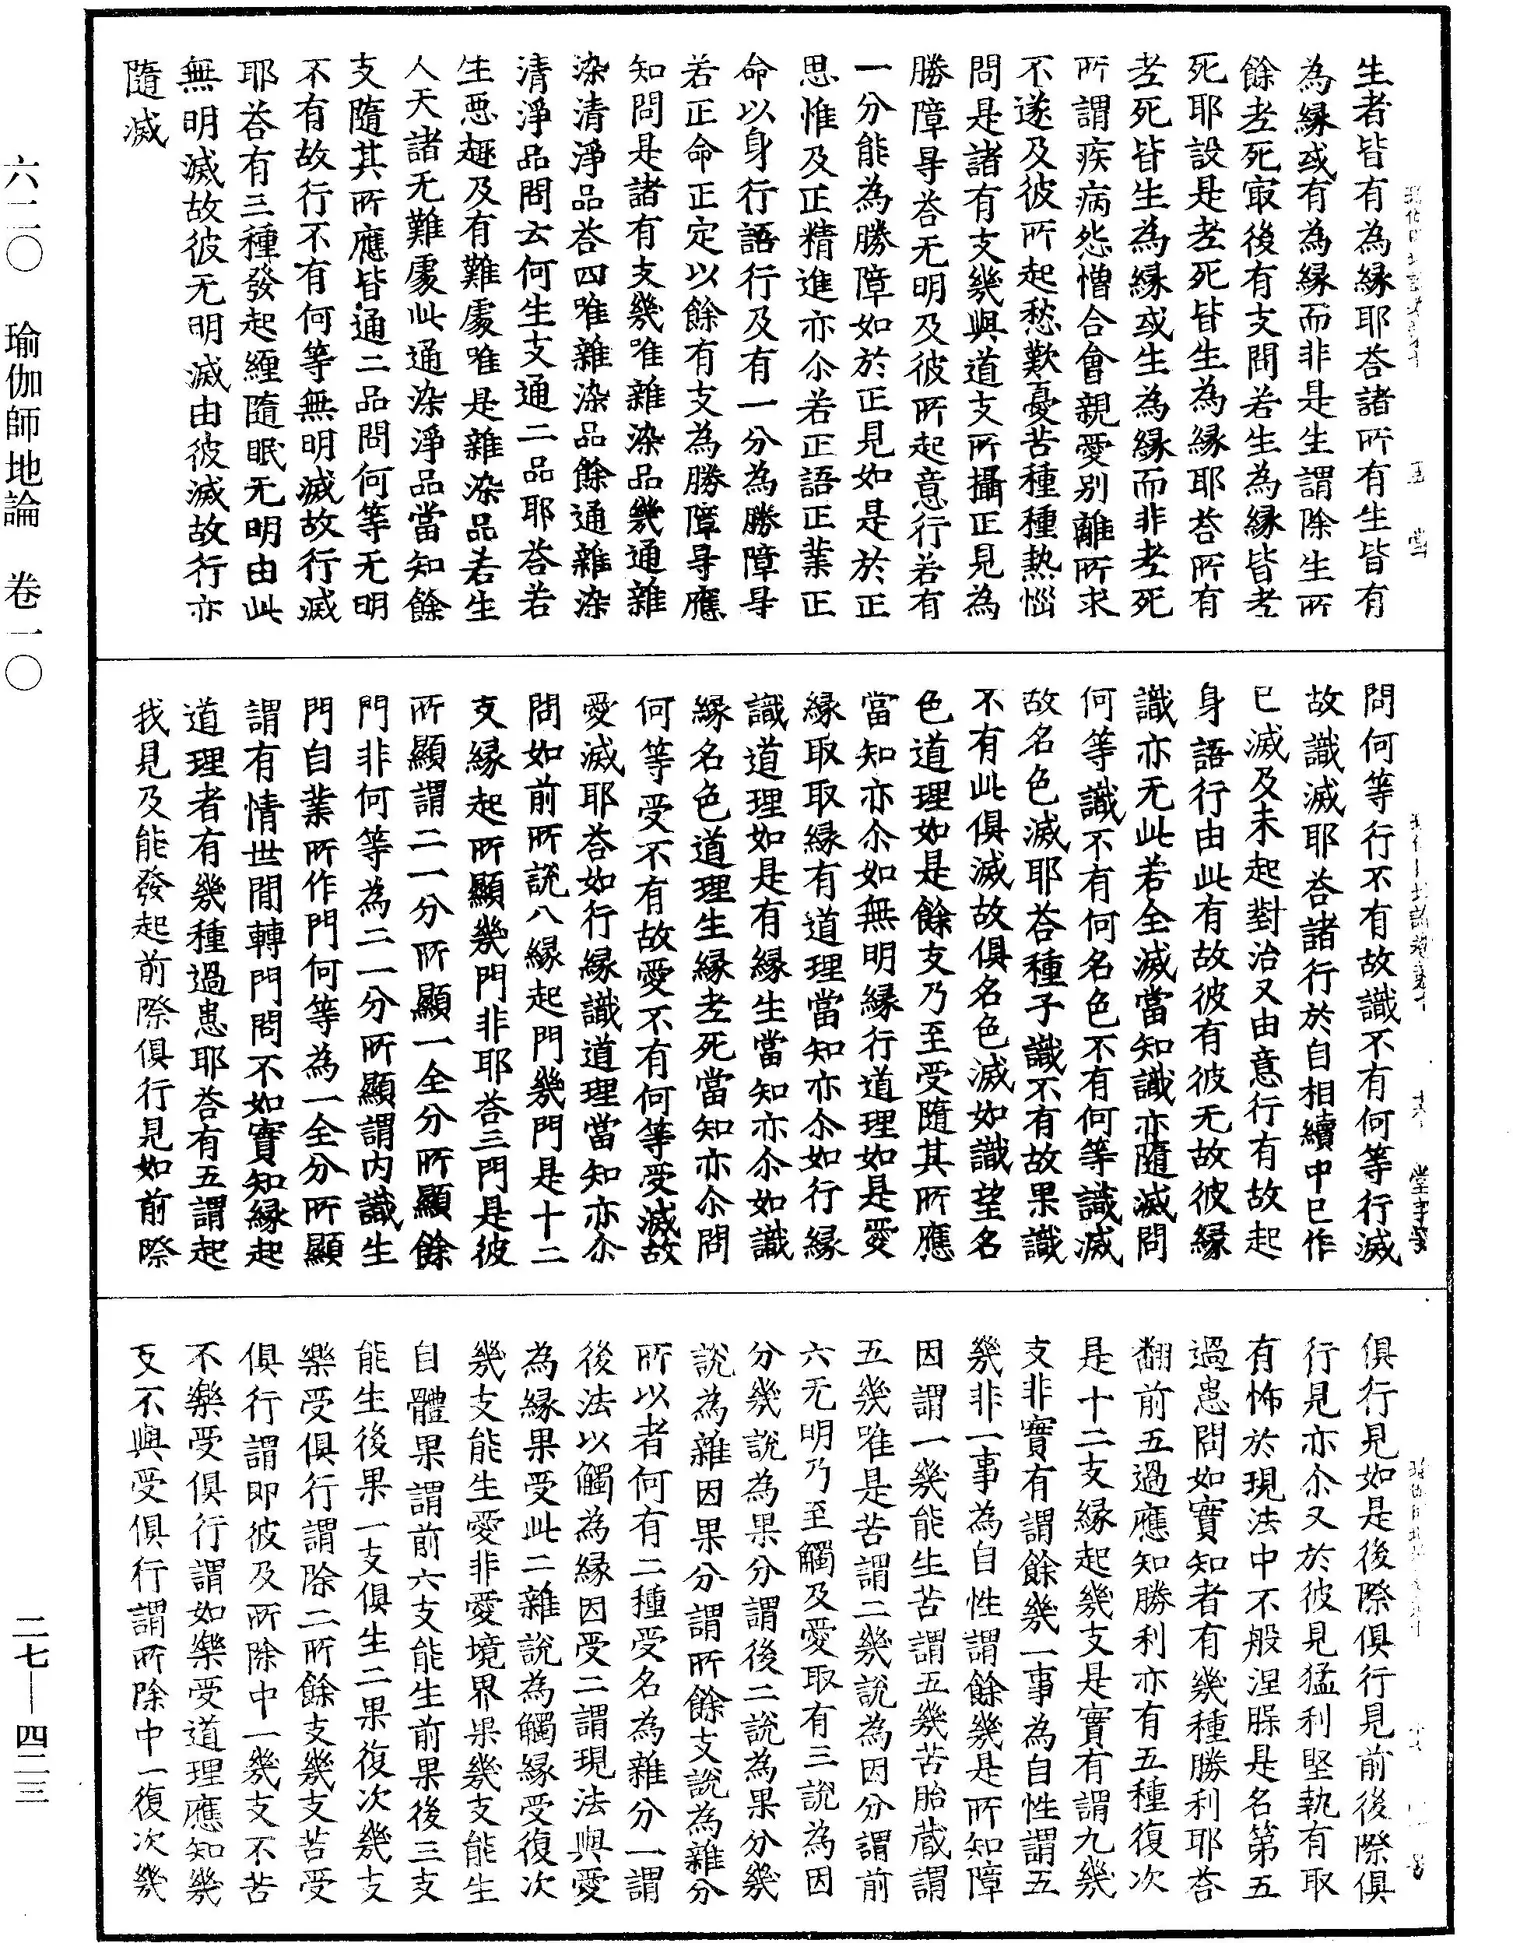 生者皆有為縁耶荅諸所有生皆有
為縁或有為縁而非是生謂除生所
餘老死㝡後有支問若生為縁皆老
死耶設是老死皆生為縁耶荅所有
老死皆生為縁或生為縁而非老死
所謂疾病怨憎合會親愛別離所求
不遂及彼所起愁歎憂苦種種熱惱
問是諸有支幾與道支所攝正見為
勝障㝵荅无明及彼所起意行若有
一分能為勝障如於正見如是於正
思惟及正精進亦尒若正語正業正
命以身行語行及有一分為勝障㝵
若正命正定以餘有支為勝障㝵應
知問是諸有支幾唯雜染品幾通雜
染清淨品荅四唯雜染品餘通雜染
清淨品問云何生支通二品耶荅若
生惡趣及有難處唯是雜染品若生
人天諸无難處此通染淨品當知餘
支隨其所應皆通二品問何等无明
不有故行不有何等無明滅故行滅
耶荅有三種發起纏隨眠无明由此
無明滅故彼无明滅由彼滅故行亦
隨滅
問何等行不有故識不有何等行滅
故識滅耶荅諸行於自相續中已作
已滅及未起對治又由意行有故起
身語行由此有故彼有彼无故彼縁
識亦无此若全滅當知識亦隨滅問
何等識不有何名色不有何等識滅
故名色滅耶荅種子識不有故果識
不有此俱滅故俱名色滅如識望名
色道理如是餘支乃至受隨其所應
當知亦尒如無明縁行道理如是愛
縁取取縁有道理當知亦尒如行縁
識道理如是有縁生當知亦尒如識
縁名色道理生縁老死當知亦尒問
何等受不有故愛不有何等受滅故
愛滅耶荅如行縁識道理當知亦尒
問如前所說八縁起門幾門是十二
支縁起所顯幾門非耶荅三門是彼
所顯謂二一分所顯一全分所顯餘
門非何等為二一分所顯謂內識生
門自業所作門何等為一全分所顯
謂有情世間轉門問不如實知縁起
道理者有幾種過患耶荅有五謂起
我見及能發起前際俱行見如前際
俱行見如是後際俱行見前後際俱
行見亦尒又於彼見猛利堅執有取
有怖於現法中不般涅槃是名第五
過患問如實知者有幾種勝利耶荅
翻前五過應知勝利亦有五種復次
是十二支縁起幾支是實有謂九幾
支非實有謂餘幾一事為自性謂五
幾非一事為自性謂餘幾是所知障
因謂一幾能生苦謂五幾苦胎藏謂
五幾唯是苦謂二幾說為因分謂前
六无明乃至觸及愛取有三說為因
分幾說為果分謂後二說為果分幾
說為雜因果分謂所餘支說為雜分
所以者何有二種受名為雜分一謂
後法以觸為縁因受二謂現法與愛
為縁果受此二雜說為觸縁受復次
幾支能生愛非愛境界果幾支能生
自體果謂前六支能生前果後三支
能生後果一支俱生二果復次幾支
樂受俱行謂除二所餘支幾支苦受
俱行謂即彼及所除中一幾支不苦
不樂受俱行謂如樂受道理應知幾
支不與受俱行謂所除中一復次幾
六二〇 瑜伽師地論 卷一〇
二七—四二三